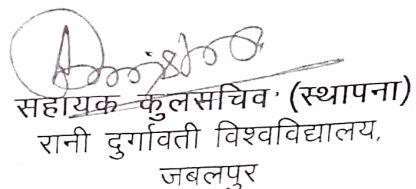 सहायक कुलसचिव (स्थापना)
रानी दुर्गावती विश्वविद्यालय,
जबलपुर